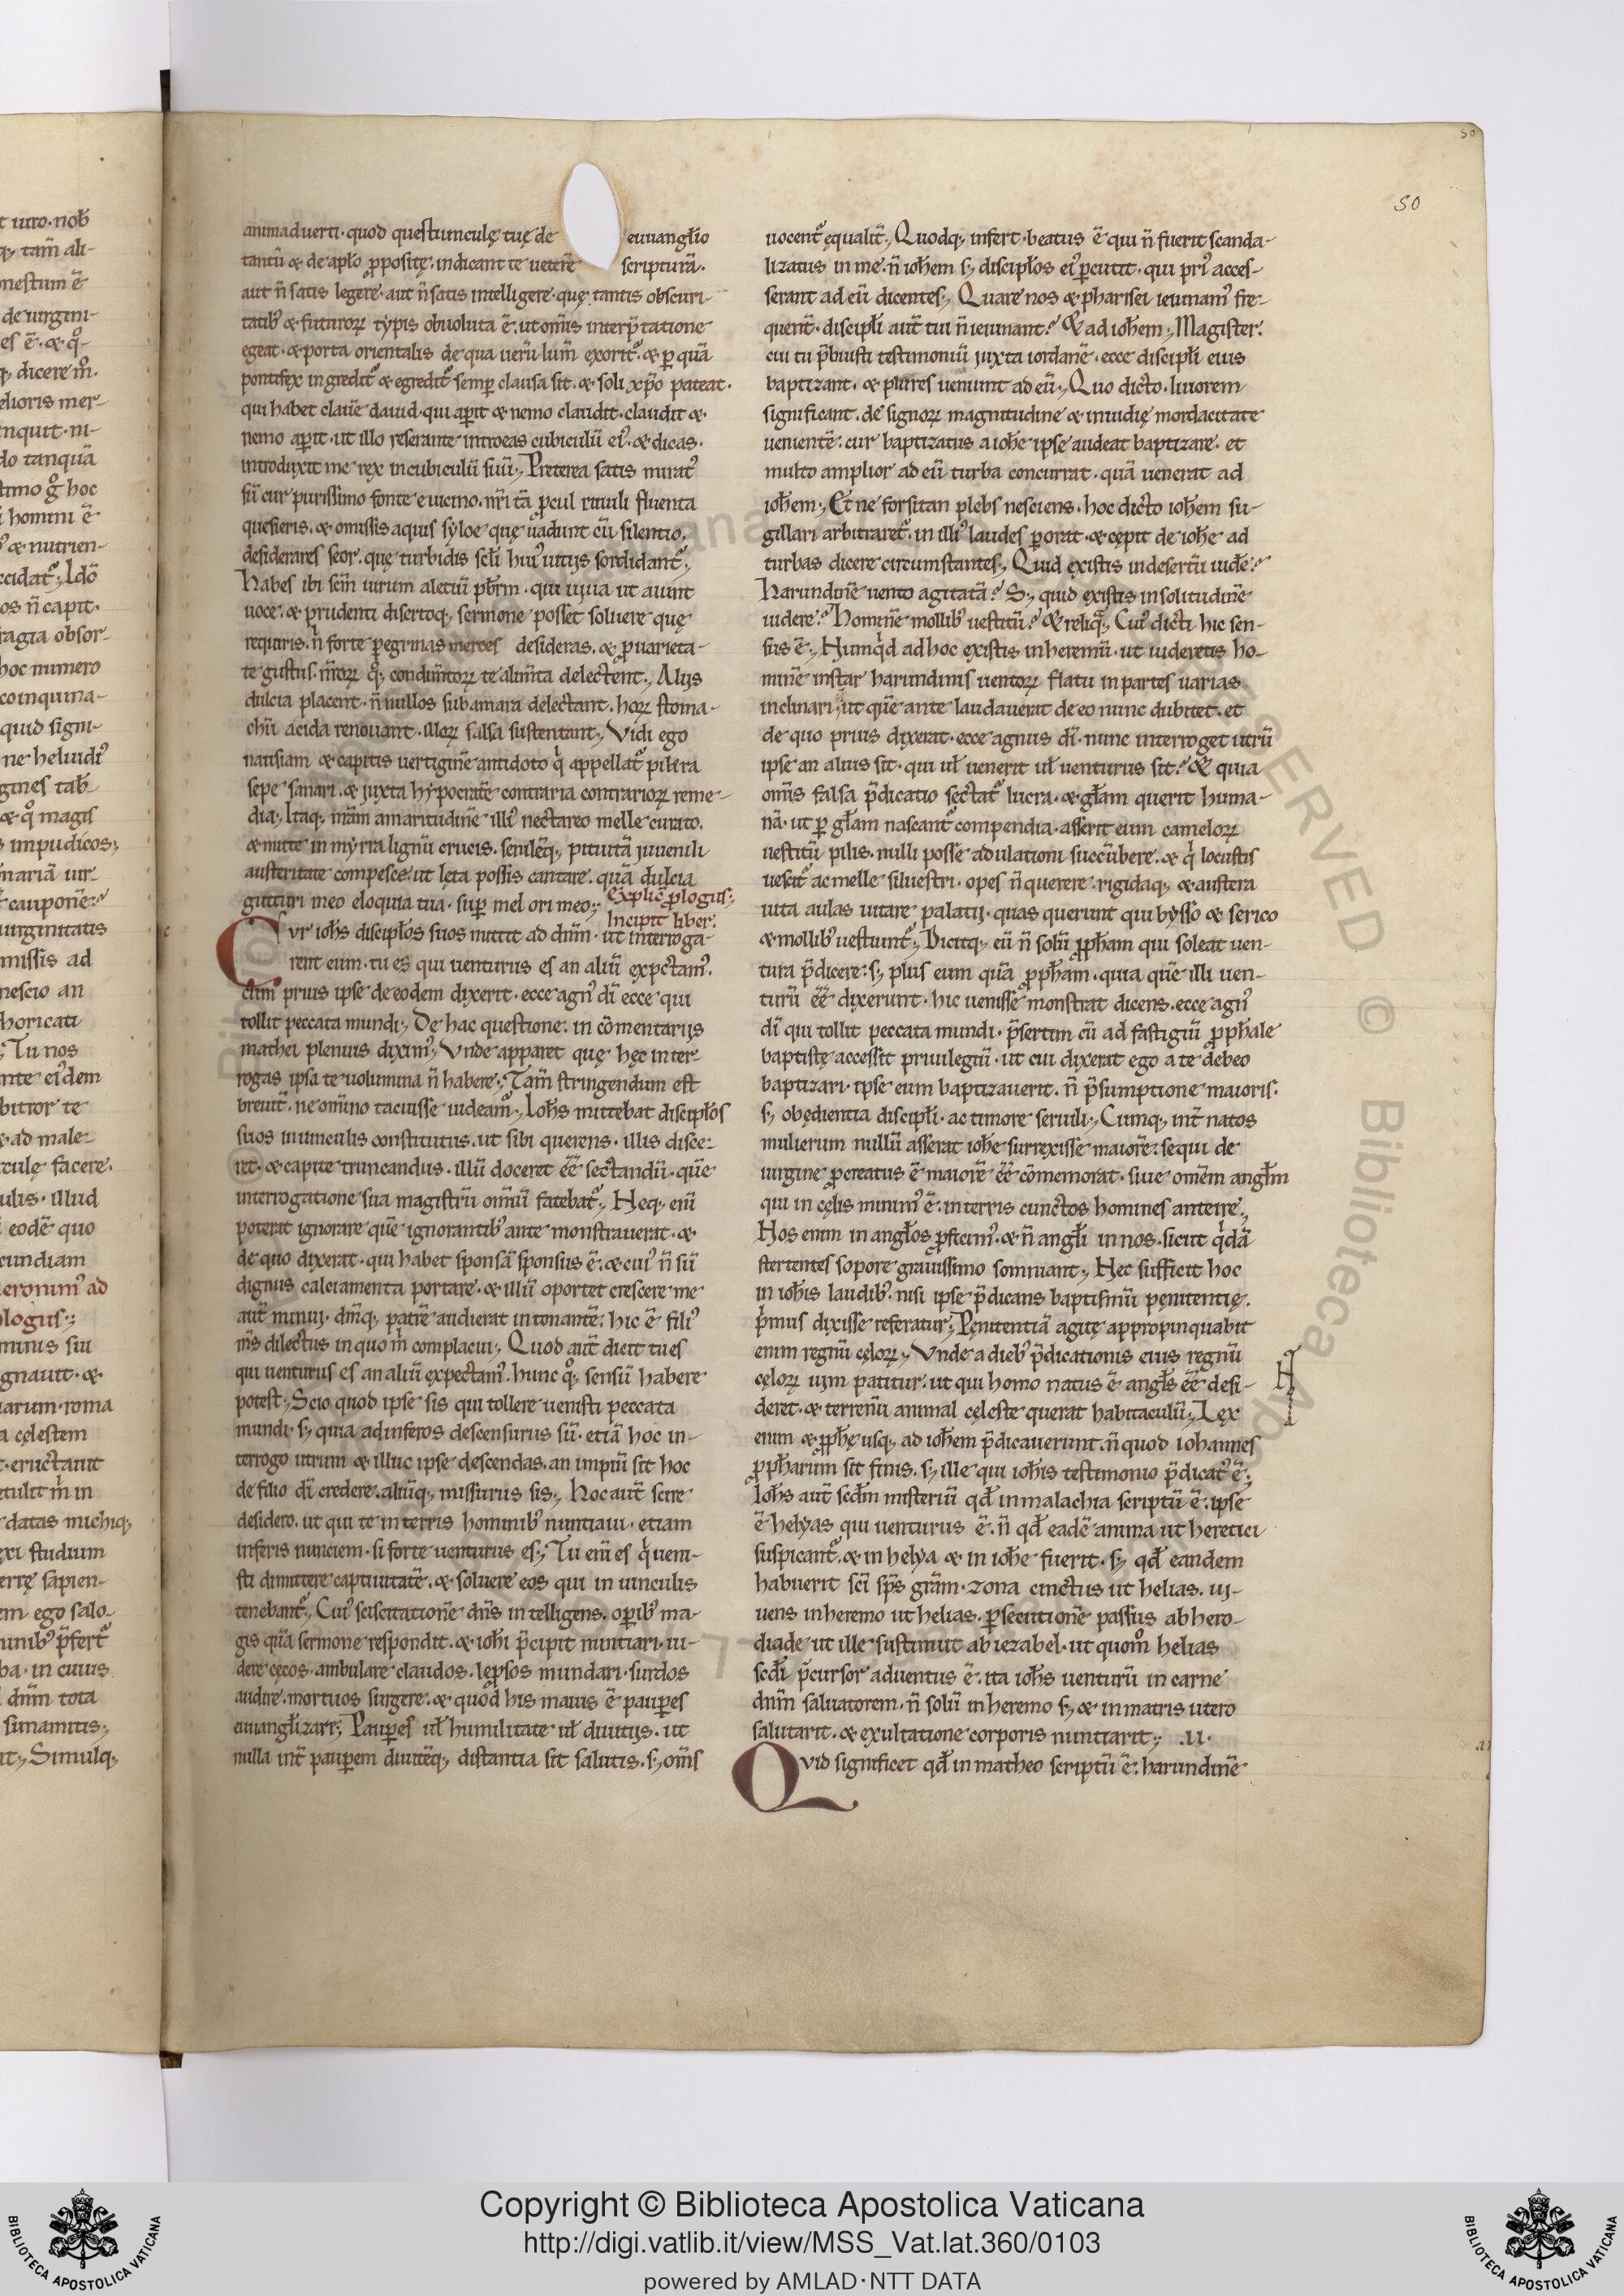 50
50
animaduerti·quod questiunculę tuę de euuangl̄io
tantū & de apl̄o ꝓpositę·indicant te uetерē scripturā·
aut n̄ satis legere·aut n̄ satis intelligere·quę tantis obscuri-
tatib; & futuroꝝ typis obuoluta ē·ut om̄is interp̄tatione
egeat·& porta orientalis de qua uerū lum̄ exorit᷑·& ꝑ quā
pontifex ingredit᷑ & egredit᷑ semꝑ clausa sit·& soli xp̄o pateat·
qui habet clauē dauid·qui aꝑit & nemo claudit·claudit &
nemo aꝑit·ut illo reserante introeas cubiculū eiꝰ·& dicas·
introduxit me rex in cubiculū suū; Preterea satis miratꝰ
sū cur purissimo fonte e uicino·nr̄i tā ꝓcul riuuli fluenta
quesieris·& omissis aquis syloe quę uadunt cū silentio·
desiderares seor·quę turbidis scl̄i huiꝰ uitijs sordidant᷑;
Habes ibi sc̄m uirum aletiū pb̄rm·qui uiua ut aiunt
uoce·& prudenti disertoq; sermone posset soluere quę
requiris·n̄ forte ꝑegrinas merces desideras·& ꝓ uarieta-
te gustus·nr̄oꝝ qͦq; condim̄toꝝ te alim̄ta delectent; Alijs
dulcia placent·n̄nullos subamara delectant·hoꝝ stoma-
chū acida renouant·illoꝝ salsa sustentant; Vidi ego
nausiam & capitis uertiginē antidoto q̇ appellat᷑ pikra
sepe sanari·& juxta hypocratē contraria contrarioꝝ reme-
dia; Itaq; nr̄am amaritudinē illiꝰ nectareo melle curato·
& mitte in myrra lignū crucis·senilēq; pituitā juuenili
austeritate compesce·ut lęta possis cantare·quā dulcia
gutturi meo eloquia tua·suꝑ mel ori meo; explic̄ ꝓlogus;
Incipit liber:
Cvr ioh̄s discipl̄os suos mittit ad dn̄m·ut interroga-
rent eum·tu es qui uenturus es an aliū expectamꝰ·
cum prius ipse de eodem dixerit·ecce agnꝰ dī ecce qui
tollit peccata mundi; De hac questione·in cōmentarijs
mathei plenius diximꝰ; Vnde apparet quę hęc inter-
rogas ipsa te uolumina n̄ habere; Tam̄ stringendum est
breuit̄·ne om̄ino tacuisse uideam᷑; Ioh̄s mittebat discipl̄os
suos in uinculis constitutus·ut sibi querens·illis disce-
ret·& capite truncandus·illū doceret ēē sectandū·quē
interrogatione sua magistrū om̄iū fatebat᷑; Neq; enī
poterat ignorare quē ignorantibꝰ ante monstrauerat·&
de quo dixerat·qui habet sponsā sponsus ē·& cuiꝰ n̄ sū
dignus calciamenta portare·& illū oportet crescere me
aut̄ minuj·dm̄q; patrē audierat intonantē·hic ē filiꝰ
m̄s dilectus in quo m̍ complacui; Quod aut̄ dicit tu es
qui uenturus es an aliū expectamꝰ·hunc qͦq; sensū habere
potest; Scio quod ipse sis qui tollere uenisti peccata
mundi·s; quia ad inferos descensurus sū·etiā hoc in-
terrogo utrum & illuc ipse descendas·an impiū sit hoc
de filio dī credere·aliūq; missurus sis; Hoc aut̄ scire
desidero·ut qui te in terris hominibꝰ nuntiaui·etiam
inferis nunciem·si forte uenturus es; Tu enī es q̍ ueni-
sti dimittere captiuitatē·& soluere eos qui in uinculis
tenebant᷑; Cuiꝰ sciscitationē dn̄s intelligens·oꝑibꝰ ma-
gis quā sermone respondit·& ioh̄i p̄cipit nuntiari·ui-
dere cęcos·ambulare claudos·leprosos mundari·surdos
audire·mortuos surgere·& quod his maius ē pauꝑes
euuangl̄izari; Pauꝑes ul̄ humilitate ul̄ diuitijs·ut
nulla int̄ pauꝑem diuitēq; distantia sit salutis·s; om̄s
uocent᷑ ęqualit̄; Quodq; infert·beatus ē qui n̄ fuerit scanda-
lizatus in me·n̄ ioh̄em s; discipl̄os eiꝰ ꝑcutit·qui priꝰ acces-
serant ad eū dicentes; Quare nos & pharisei ieiunamꝰ fre-
quent̄·discipl̄i aut̄ tui n̄ ieiunant? & ad ioh̄em; Magister·
cui tu p̄buisti testimoniū juxta iordanē·ecce discipl̄i eius
baptizant·& plures ueniunt ad eū; Quo dicto·liuorem
significant·de signoꝝ magnitudine & inuidię mordacitate
uenientē·cur baptizatus a ioh̄e ipse audeat baptizare·et
multo amplior ad eū turba concurrat·quā uenerat ad
ioh̄em; Et ne forsitan plebs nesciens·hoc dicto ioh̄em su-
gillari arbitraret᷑·in illiꝰ laudes ꝑorat·& cępit de ioh̄e ad
turbas dicere circumstantes; Quid existis in desertū uid̄e?
Harundinē uento agitatā? S; quid existis in solitudinē
uidere? Hominē mollibꝰ uestitū? & reliq̄; Cuiꝰ dicti hic sen-
sus ē; Numq̍d ad hoc existis in heremū·ut uideretis ho-
minē instar harundinis uentoꝝ flatu in partes uarias
inclinari·ut quē ante laudauerat de eo nunc dubitet·et
de quo prius dixerat·ecce agnus dī·nunc interroget utrū
ipse an alius sit·qui ul̄ uenerit ul̄ uenturus sit? & quia
om̄is falsa p̄dicatio sectat᷑ lucra·& gl̄am querit huma-
nā·ut ꝑ gl̄am nascant᷑ compendia·asserit eum cameloꝝ
uestitū pilis·nulli posse adulationi succūbere·& q̍ locustis
uescit᷑ ac melle siluestri·opes n̄ querere·rigidaq; & austera
uita aulas uitare palatij·quas querunt qui bysso & serico
& mollibꝰ uestiunt᷑; Dicitq; eū n̄ solū ꝓph̄am qui soleat uen-
tura p̄dicere·s; plus eum quā ꝓph̄am·quia quē illi uen-
turū ēē dixerunt·hic uenisse monstrat dicens·ecce agnꝰ
dī qui tollit peccata mundi·p̄sertim cū ad fastigiū ꝓph̄ale
baptistę accessit priuilegiū·ut cui dixerat ego a te debeo
baptizari·ipse eum baptizauerit·n̄ p̄sumptione maioris·
s; obędientia discipl̄i·ac timore seruili; Cumq; int̄ natos
mulierum nullū asserat ioh̄e surrexisse maiorē·se qui de
uirgine ꝓcreatus ē maiorē ēē cōmemorat·siue om̄em angl̄m
qui in cęlis minimꝰ ē·in terris cunctos homines anteire;
Nos enim in angl̄os ꝓficimꝰ·& n̄ angl̄i in nos·sicut q̍dā
stertentes sopore grauissimo somniant; Nec sufficit hoc
in ioh̄is laudibꝰ·nisi ipse p̄dicans baptismū pęnitentię·
p̍mus dixisse referatur; Pęnitentiā agite appropinquabit
enim regnū cęloꝝ; Vnde a diebꝰ p̄dicationis eius regnū
cęloꝝ uim patitur·ut qui homo natus ē angl̄s ēē desi-
deret·& terrenū animal cęleste querat habitaculū; Lex
enim & ꝓph̄ę usq; ad ioh̄em p̄dicauerunt·n̄ quod iohannes
ꝓph̄arum sit finis·s; ille qui ioh̄is testimonio p̄dicatꝰ ē;
Ioh̄s aut̄ scd̄m misteriū qd̄ in malachia scriptū ē·ipse
ē helyas qui uenturus ē·n̄ qd̄ eadē anima ut heretici
suspicant᷑·& in helya & in ioh̄e fuerit·s; qd̄ eandem
habuerit sc̄i sp̄s grām·zona cinctus ut helias·ui-
uens in heremo ut helias·ꝑsecutionē passus ab hero-
diade ut ille sustinuit ab iezabel·ut quom̊ helias
scd̄i p̄cursor aduentus ē·ita ioh̄s uenturū in carne
dn̄m saluatorem·n̄ solū in heremo s; & in matris utero
salutarit·& exultatione corporis nuntiarit; .II.
Qvid significet qd̄ in matheo scriptū ē·harundinē
Copyright © Biblioteca Apostolica Vaticana
http://digi.vatlib.it/view/MSS_Vat.lat.360/0103
powered by AMLAD·NTT DATA
BIBLIOTECA APOSTOLICA VATICANA
BIBLIOTECA APOSTOLICA VATICANA